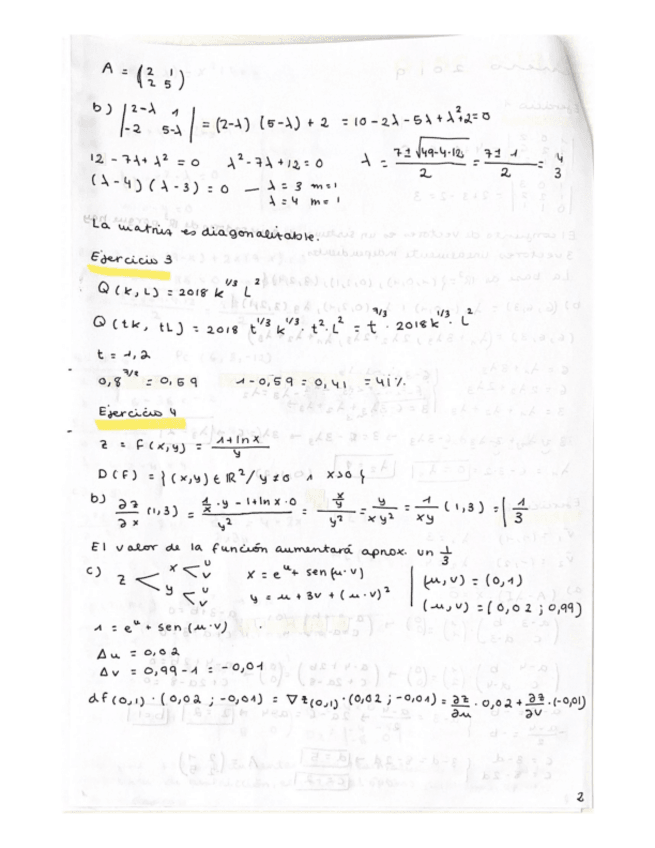 A = (2 1
2 5)
b) |2-λ 1
-2 5-λ| = (2-λ) (5-λ) + 2 = 10 - 2λ - 5λ + λ² + 2 = 0
12 - 7λ + λ² = 0 λ² - 7λ + 12 = 0 λ = 7 ± √49-4·12 / 2 = 7 ± 1 / 2 = 4 3
(λ-4) (λ-3) = 0 — λ = 3 m=1
λ = 4 m=1
La matriz es diagonalizable.
Ejercicio 3
Q (K, L) = 2018 K^1/3 L²
Q (tK, tL) = 2018 t^1/3 K^1/3 · t² · L² = t · 2018 K^1/3 · L²
t = 1,2
0,8 = 0,59 1 - 0,59 = 0,41 = 41%
Ejercicio 4
z = F(x,y) = 1+ln x / y
D(F) = {(x,y) ∈ ℝ² / y ≠ 0 1 x>0}
b) ∂z/∂x (1,3) = (1/x · y - 1+ln x · 0) / y² = (x/y) / y² = y / xy² = 1 / xy (1,3) = | 1/3
El valor de la función aumentará aprox. un 1/3
c) z < x < u v y < u v x = e^u + sen(u·v) | (u,v) = (0,1)
y = u + 3v + (u·v)² | (u,v) = (0,02 ; 0,99)
1 = e^u + sen(u·v)
Δu = 0,02
Δv = 0,99 - 1 = -0,01
df(0,1) · (0,02 ; -0,01) = ∇z(0,1) · (0,02 ; -0,01) = ∂z/∂u · 0,02 + ∂z/∂v · (-0,01)
2